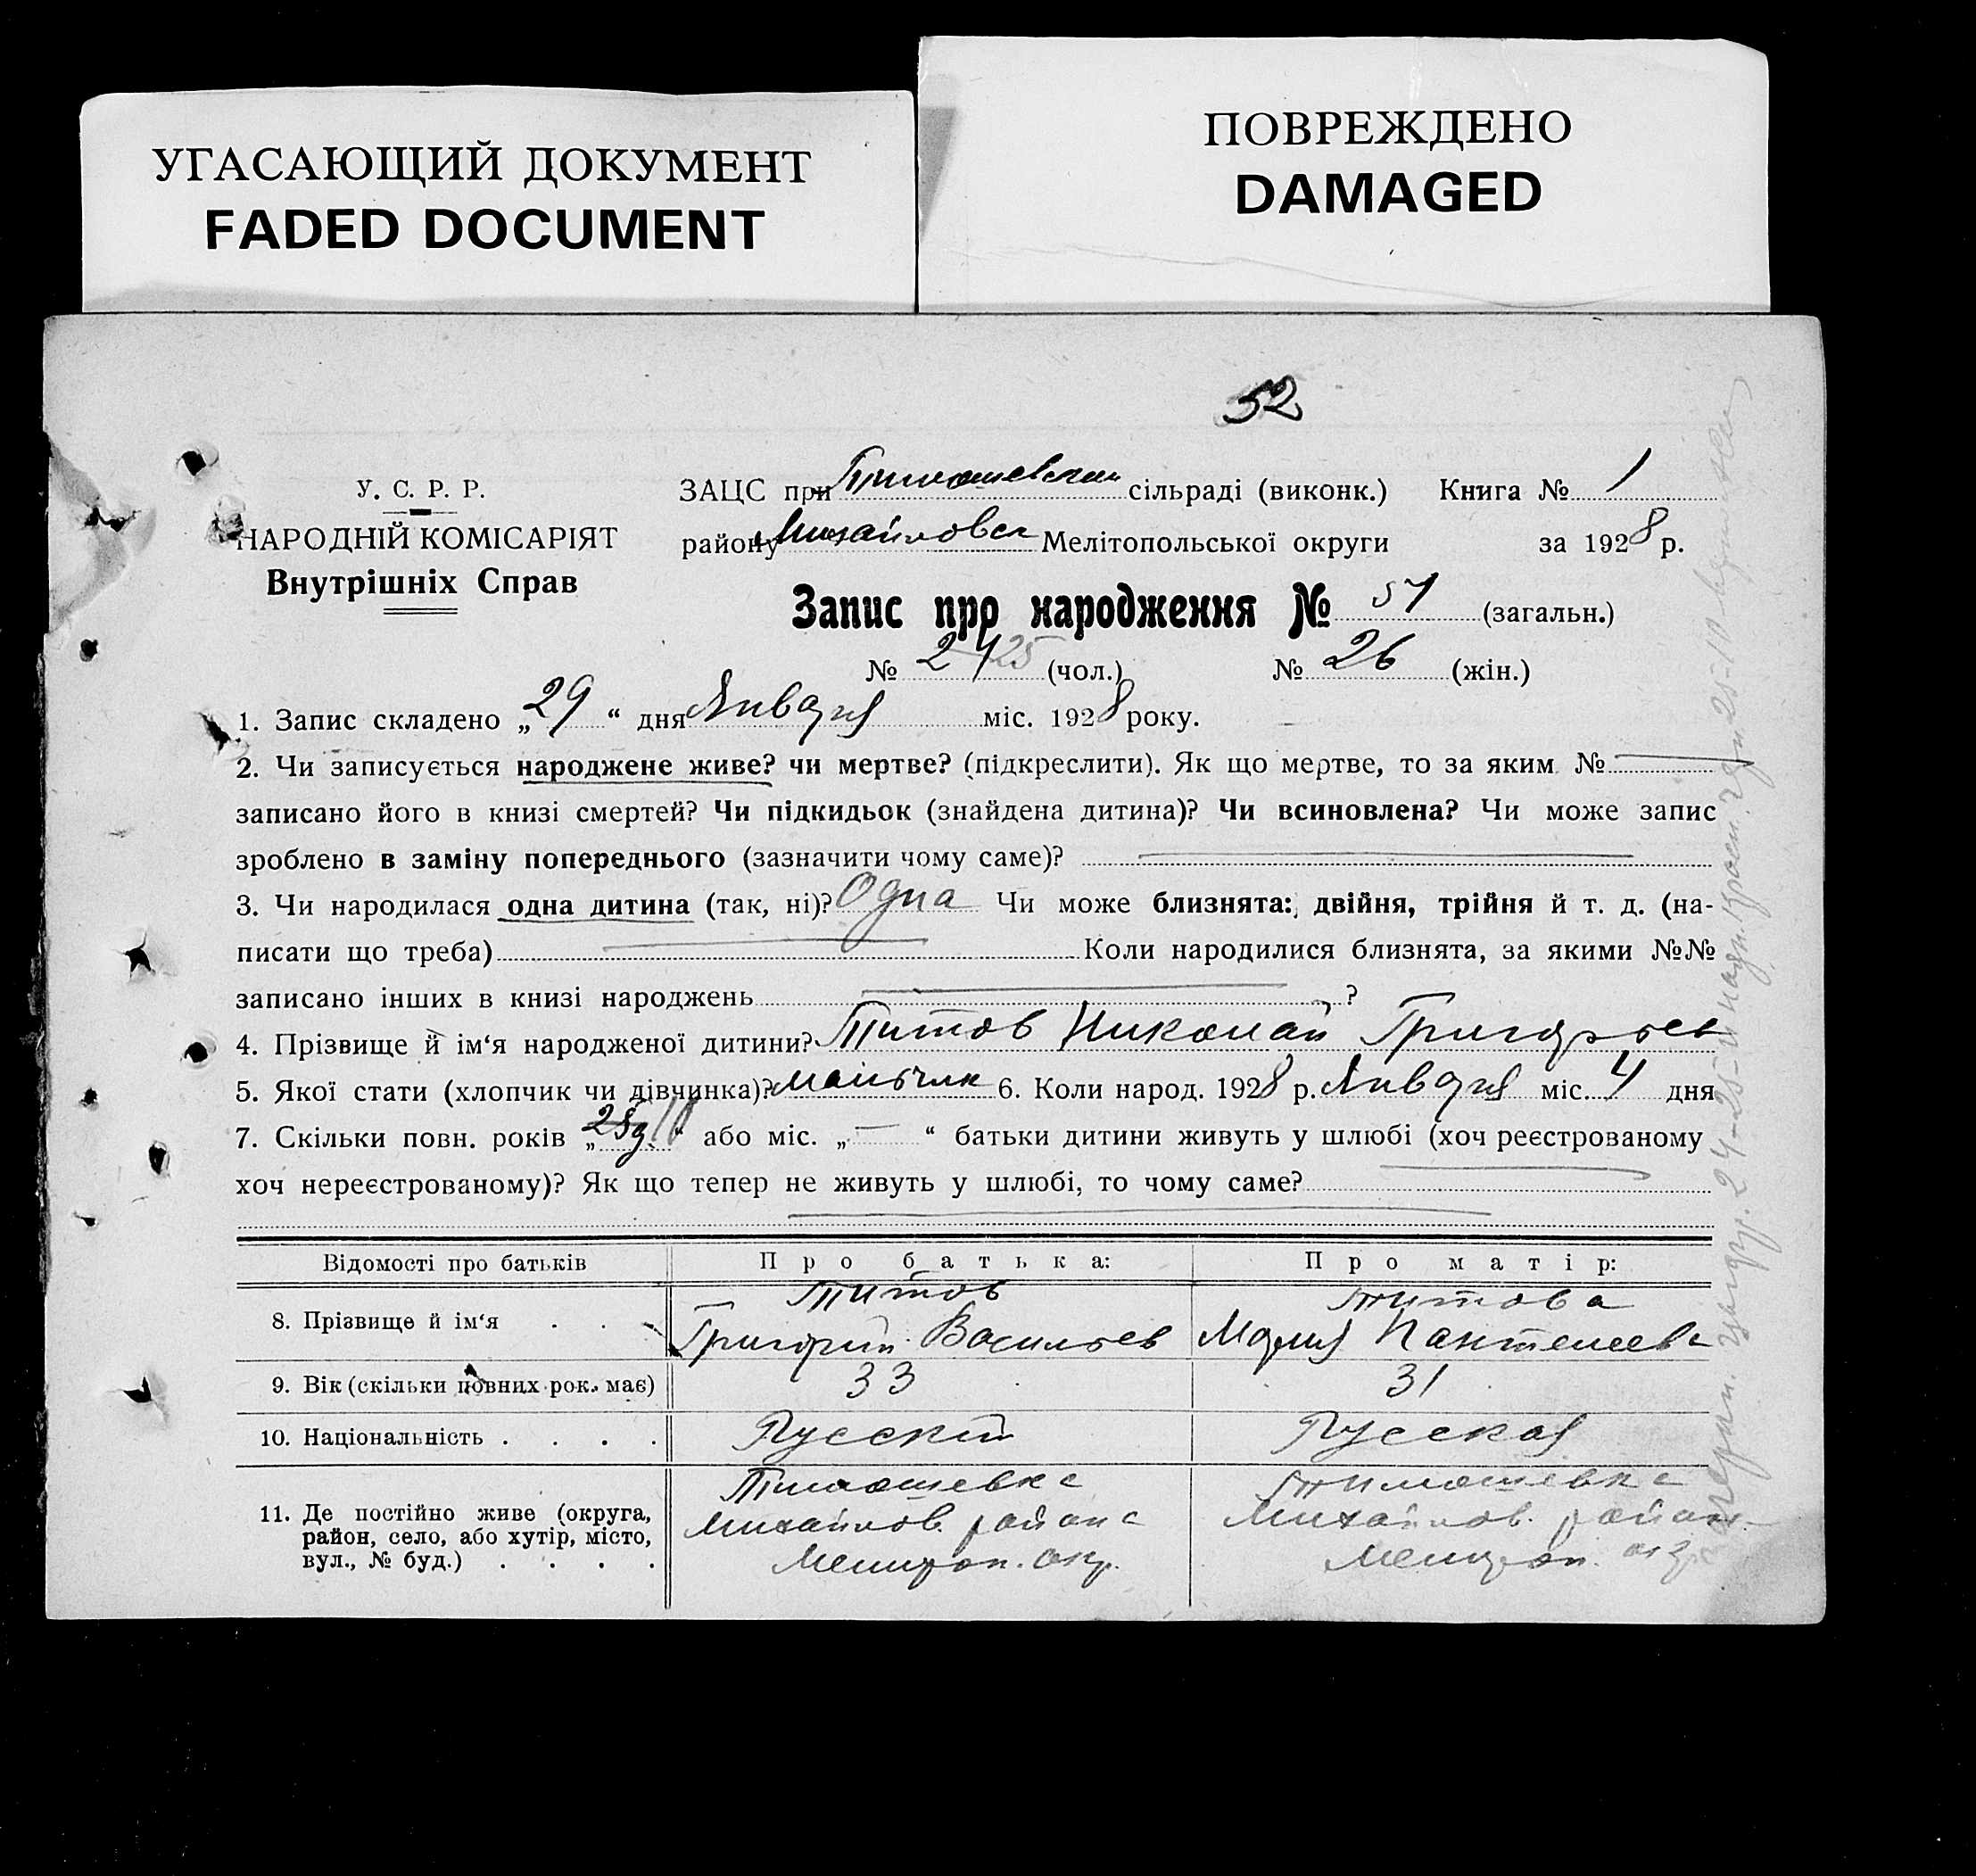 УГАСАЮЩИЙ ДОКУМЕНТ
FADED DOCUMENT
ПОВРЕЖДЕНО
DAMAGED
52
У. С. Р. Р.
НАРОДНІЙ КОМІСАРІЯТ
Внутрішніх Справ
ЗАЦС при Тимошевском сільраді (виконк.) Книга № 1
району Михайловск Мелітопольської округи за 1928 р.
Запис про народження № 51 (загальн.)
№ 24 25 (чол.) № 26 (жін.)
1. Запис складено „29“ дня Января міс. 1928 року.
2. Чи записується народжене живе? чи мертве? (підкреслити). Як що мертве, то за яким №
записано його в книзі смертей? Чи підкидьок (знайдена дитина)? Чи всиновлена? Чи може запис
зроблено в заміну попереднього (зазначити чому саме)?
3. Чи народилася одна дитина (так, ні)? Одна Чи може близнята: двійня, трійня й т. д. (на-
писати що треба) Коли народилися близнята, за якими №№
записано інших в книзі народжень ?
4. Прізвище й ім‘я народженої дитини? Титов Николай Григорьев
5. Якої стати (хлопчик чи дівчинка)? мальчик 6. Коли народ. 1928 р. Января міс. 4 дня
7. Скільки повн. років „ “ або міс. „—“ батьки дитини живуть у шлюбі (хоч реєстрованому
хоч нереєстрованому)? Як що тепер не живуть у шлюбі, то чому саме?
Відомості про батьків Про батька: Про матір:
8. Прізвище й ім‘я . . . Титов Григорий Васильев Титова Мария Пантелеев
9. Вік (скільки повних рок. має) 33 31
10. Національність . . . . Русский Русская
11. Де постійно живе (округа, район, село, або хутір, місто, вул., № буд.) . . . .
Тимошевка Тимошевка
Михайлов. района Михайлов. район
Мелитоп. окр. Мелитоп. окр